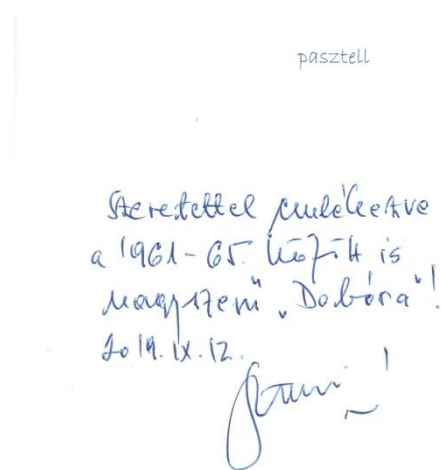 pasztell
Szeretettel emlékezve
a 1961-65. között is
nagyszerű „Dobóra"!
2019. IX. 12.